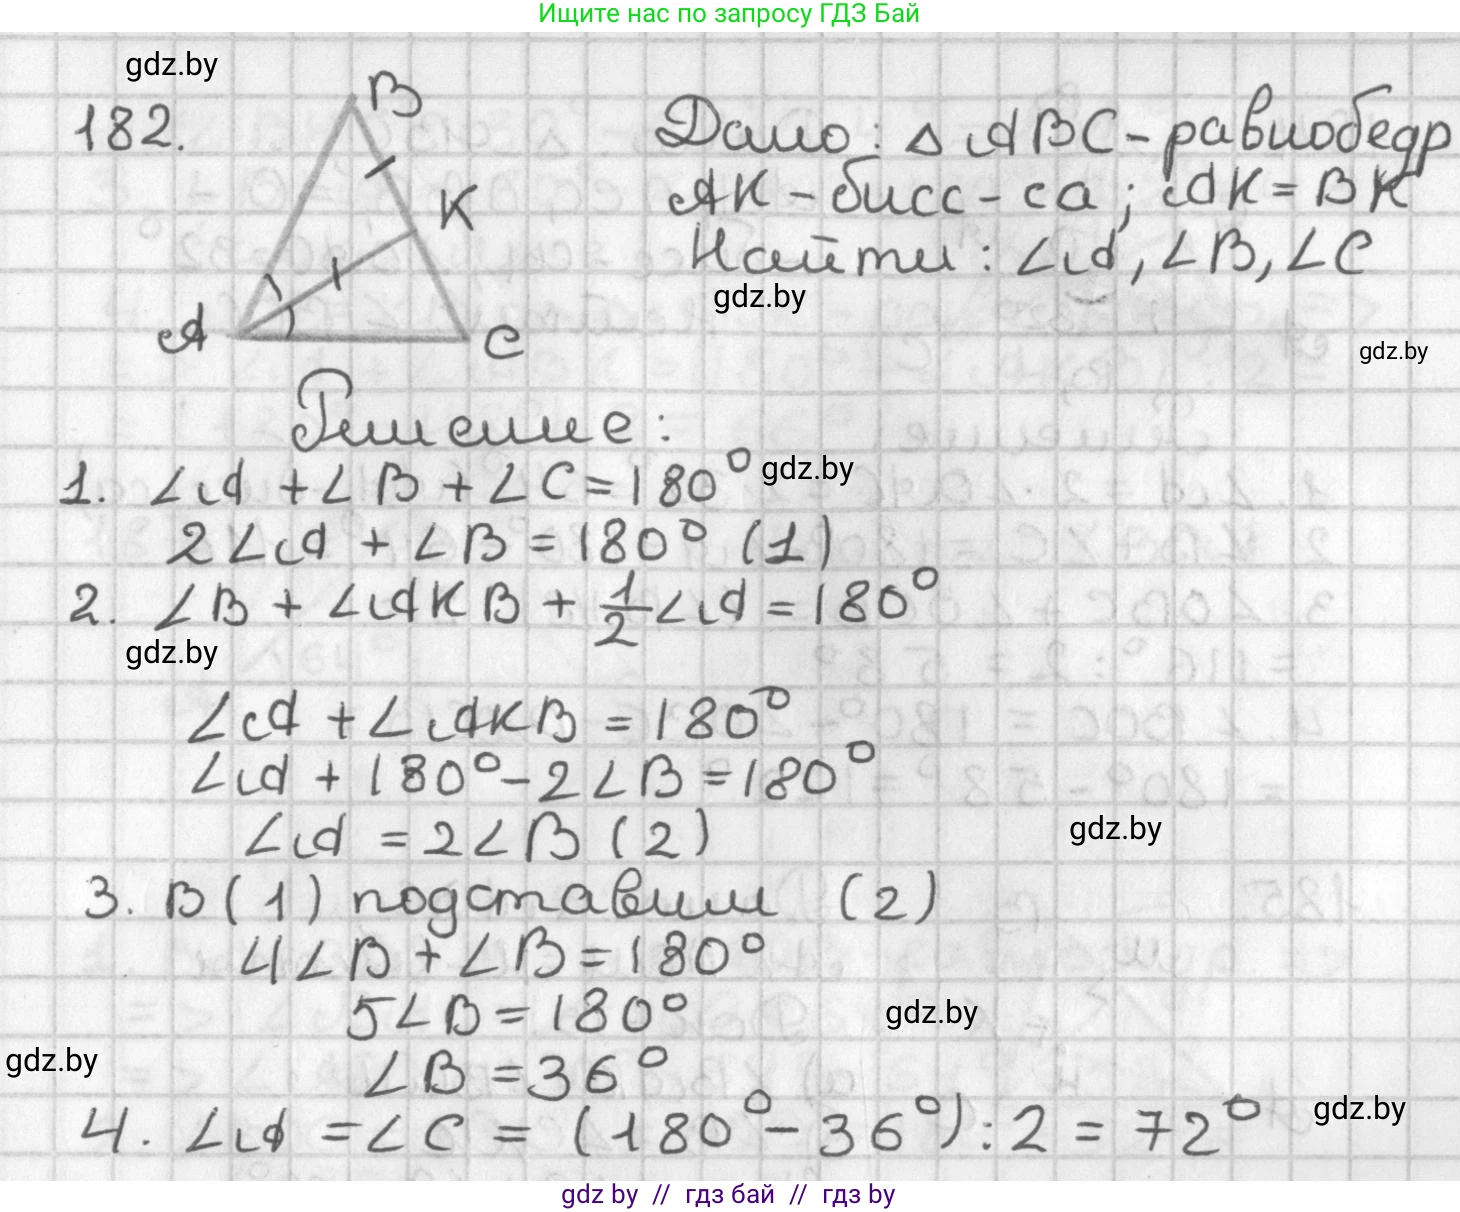 Ищите нас по запросу ГДЗ Бай
gdz.by
182.
B
K
A
C
Дано: △ABC - равнобедр
AK - бисс-са; AK = BK
Найти: ∠A, ∠B, ∠C
gdz.by
gdz.by
Решение:
1. ∠A + ∠B + ∠C = 180°
gdz.by
2∠A + ∠B = 180° (1)
2. ∠B + ∠AKB + 1/2∠A = 180°
gdz.by
∠A + ∠AKB = 180°
∠A + 180° - 2∠B = 180°
∠A = 2∠B (2)
gdz.by
3. В (1) подставим (2)
4∠B + ∠B = 180°
5∠B = 180°
gdz.by
∠B = 36°
gdz.by
4. ∠A = ∠C = (180° - 36°) : 2 = 72°
gdz.by
gdz by // гдз бай // гдз by